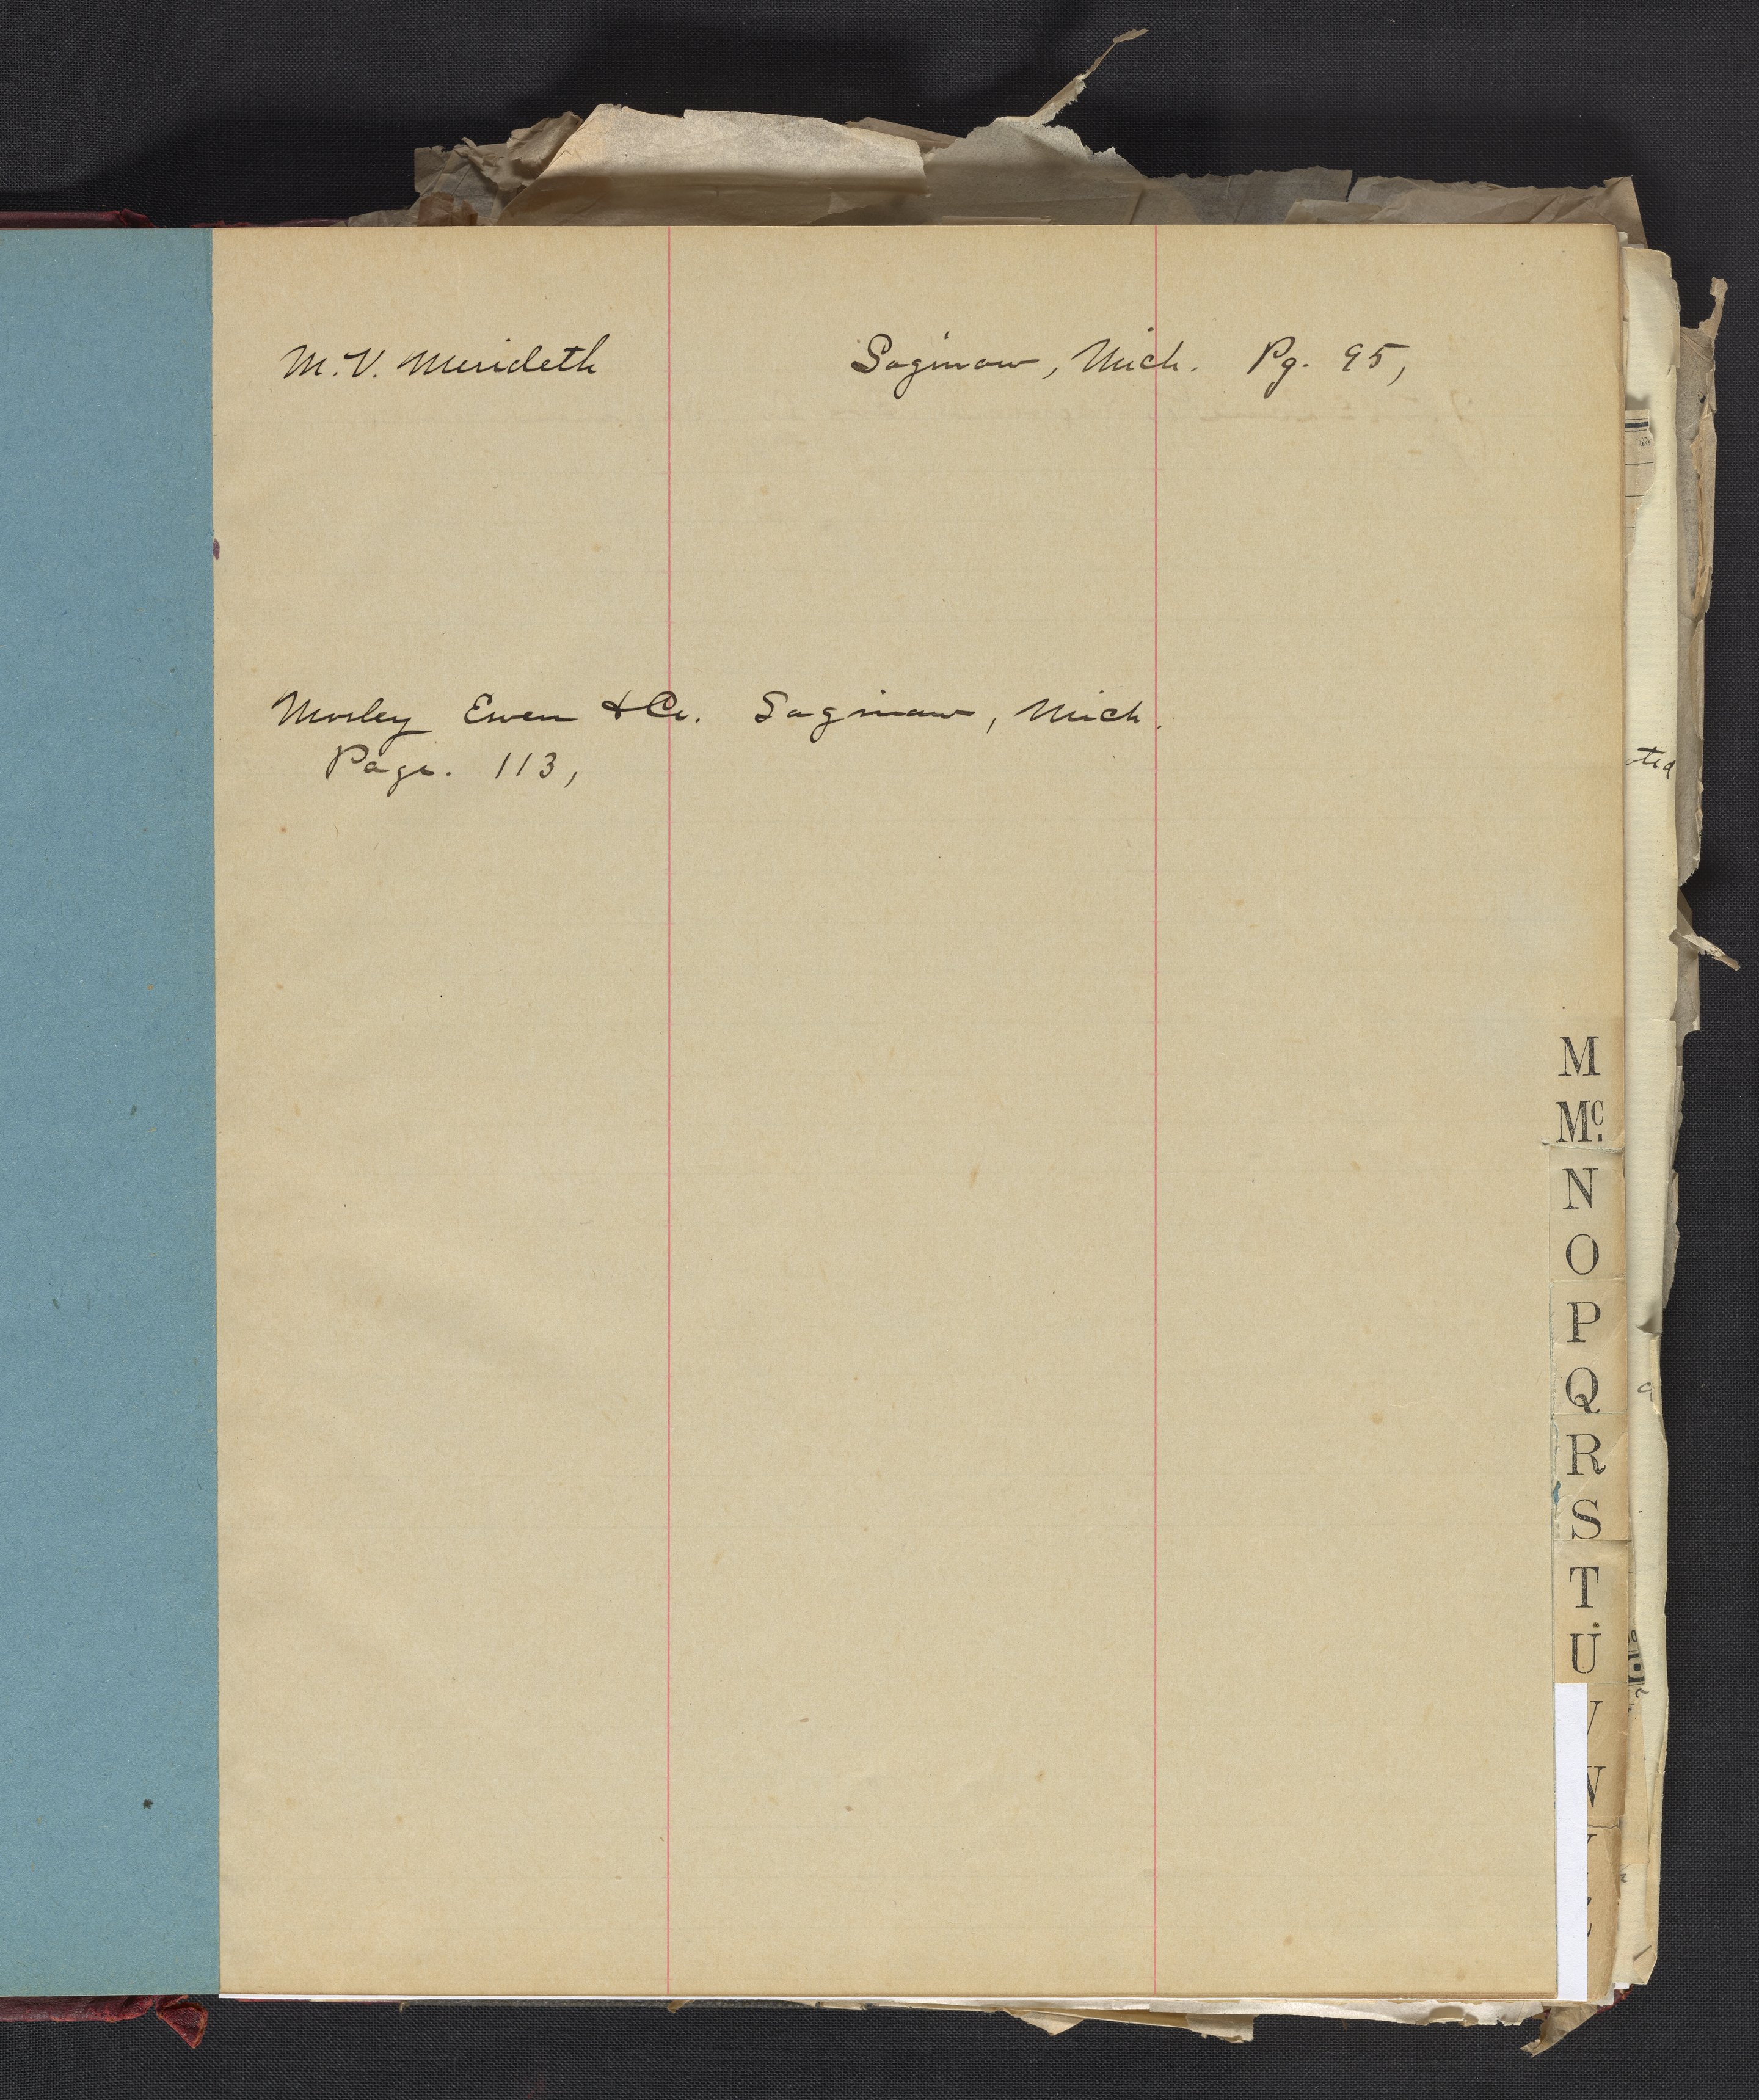 M. V. Merideth Saginaw, Mich. Pg. 95,
Morley Ewen & Co. Saginaw, Mich.
Page. 113,
ted
M
Mc.
N
O
P
Q
R
S
T
U